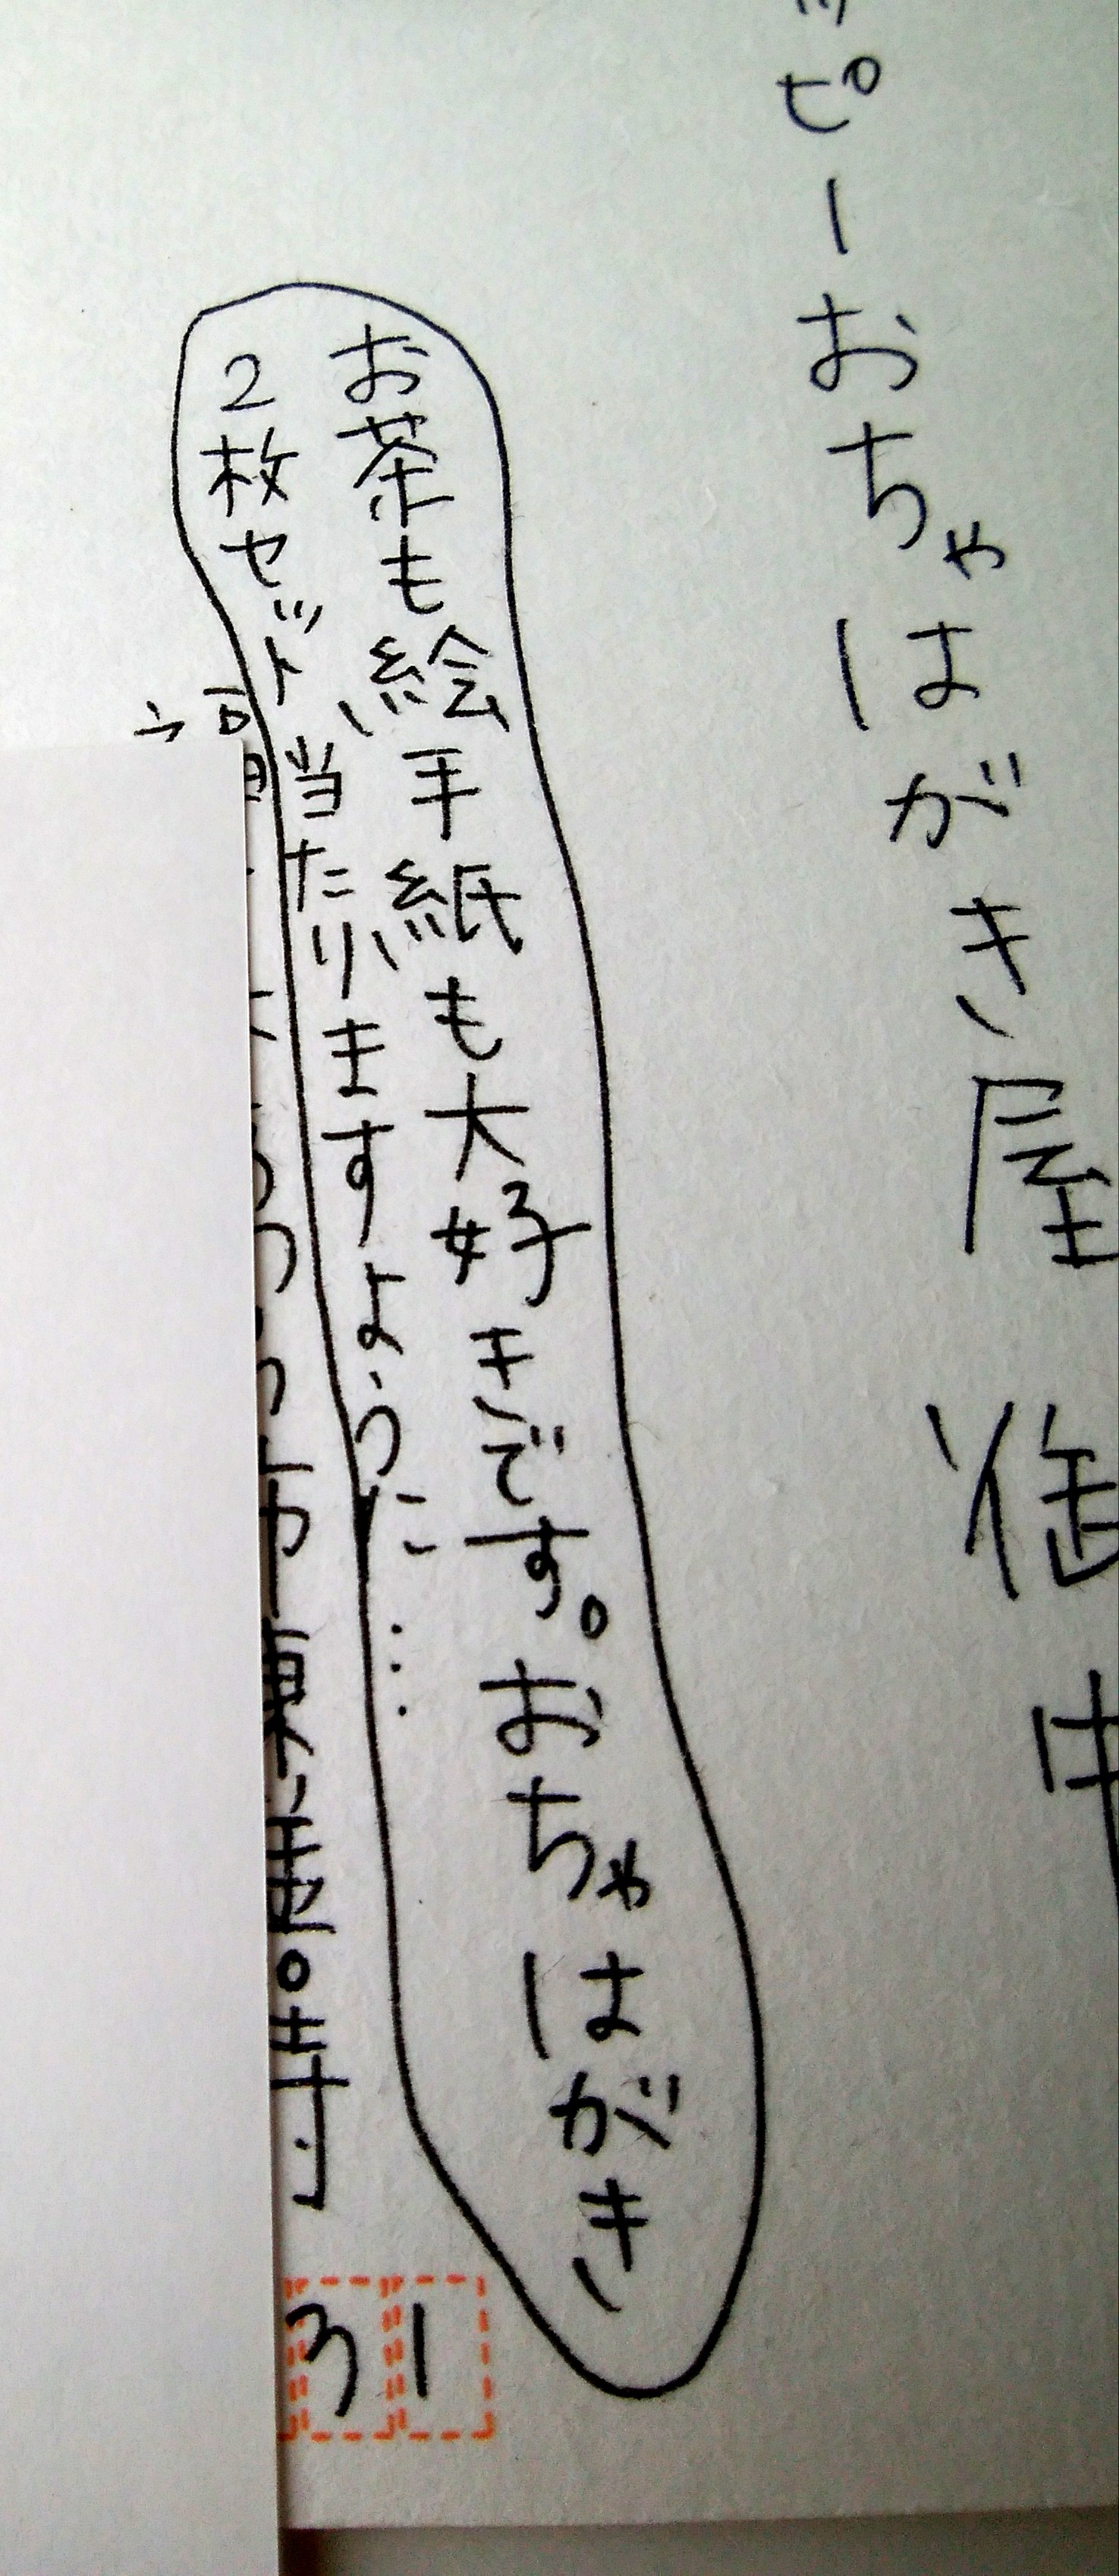 ッピーおちゃはがき屋 御中
お茶も絵手紙も大好きです。おちゃはがき
2枚セット当たりますように…
31